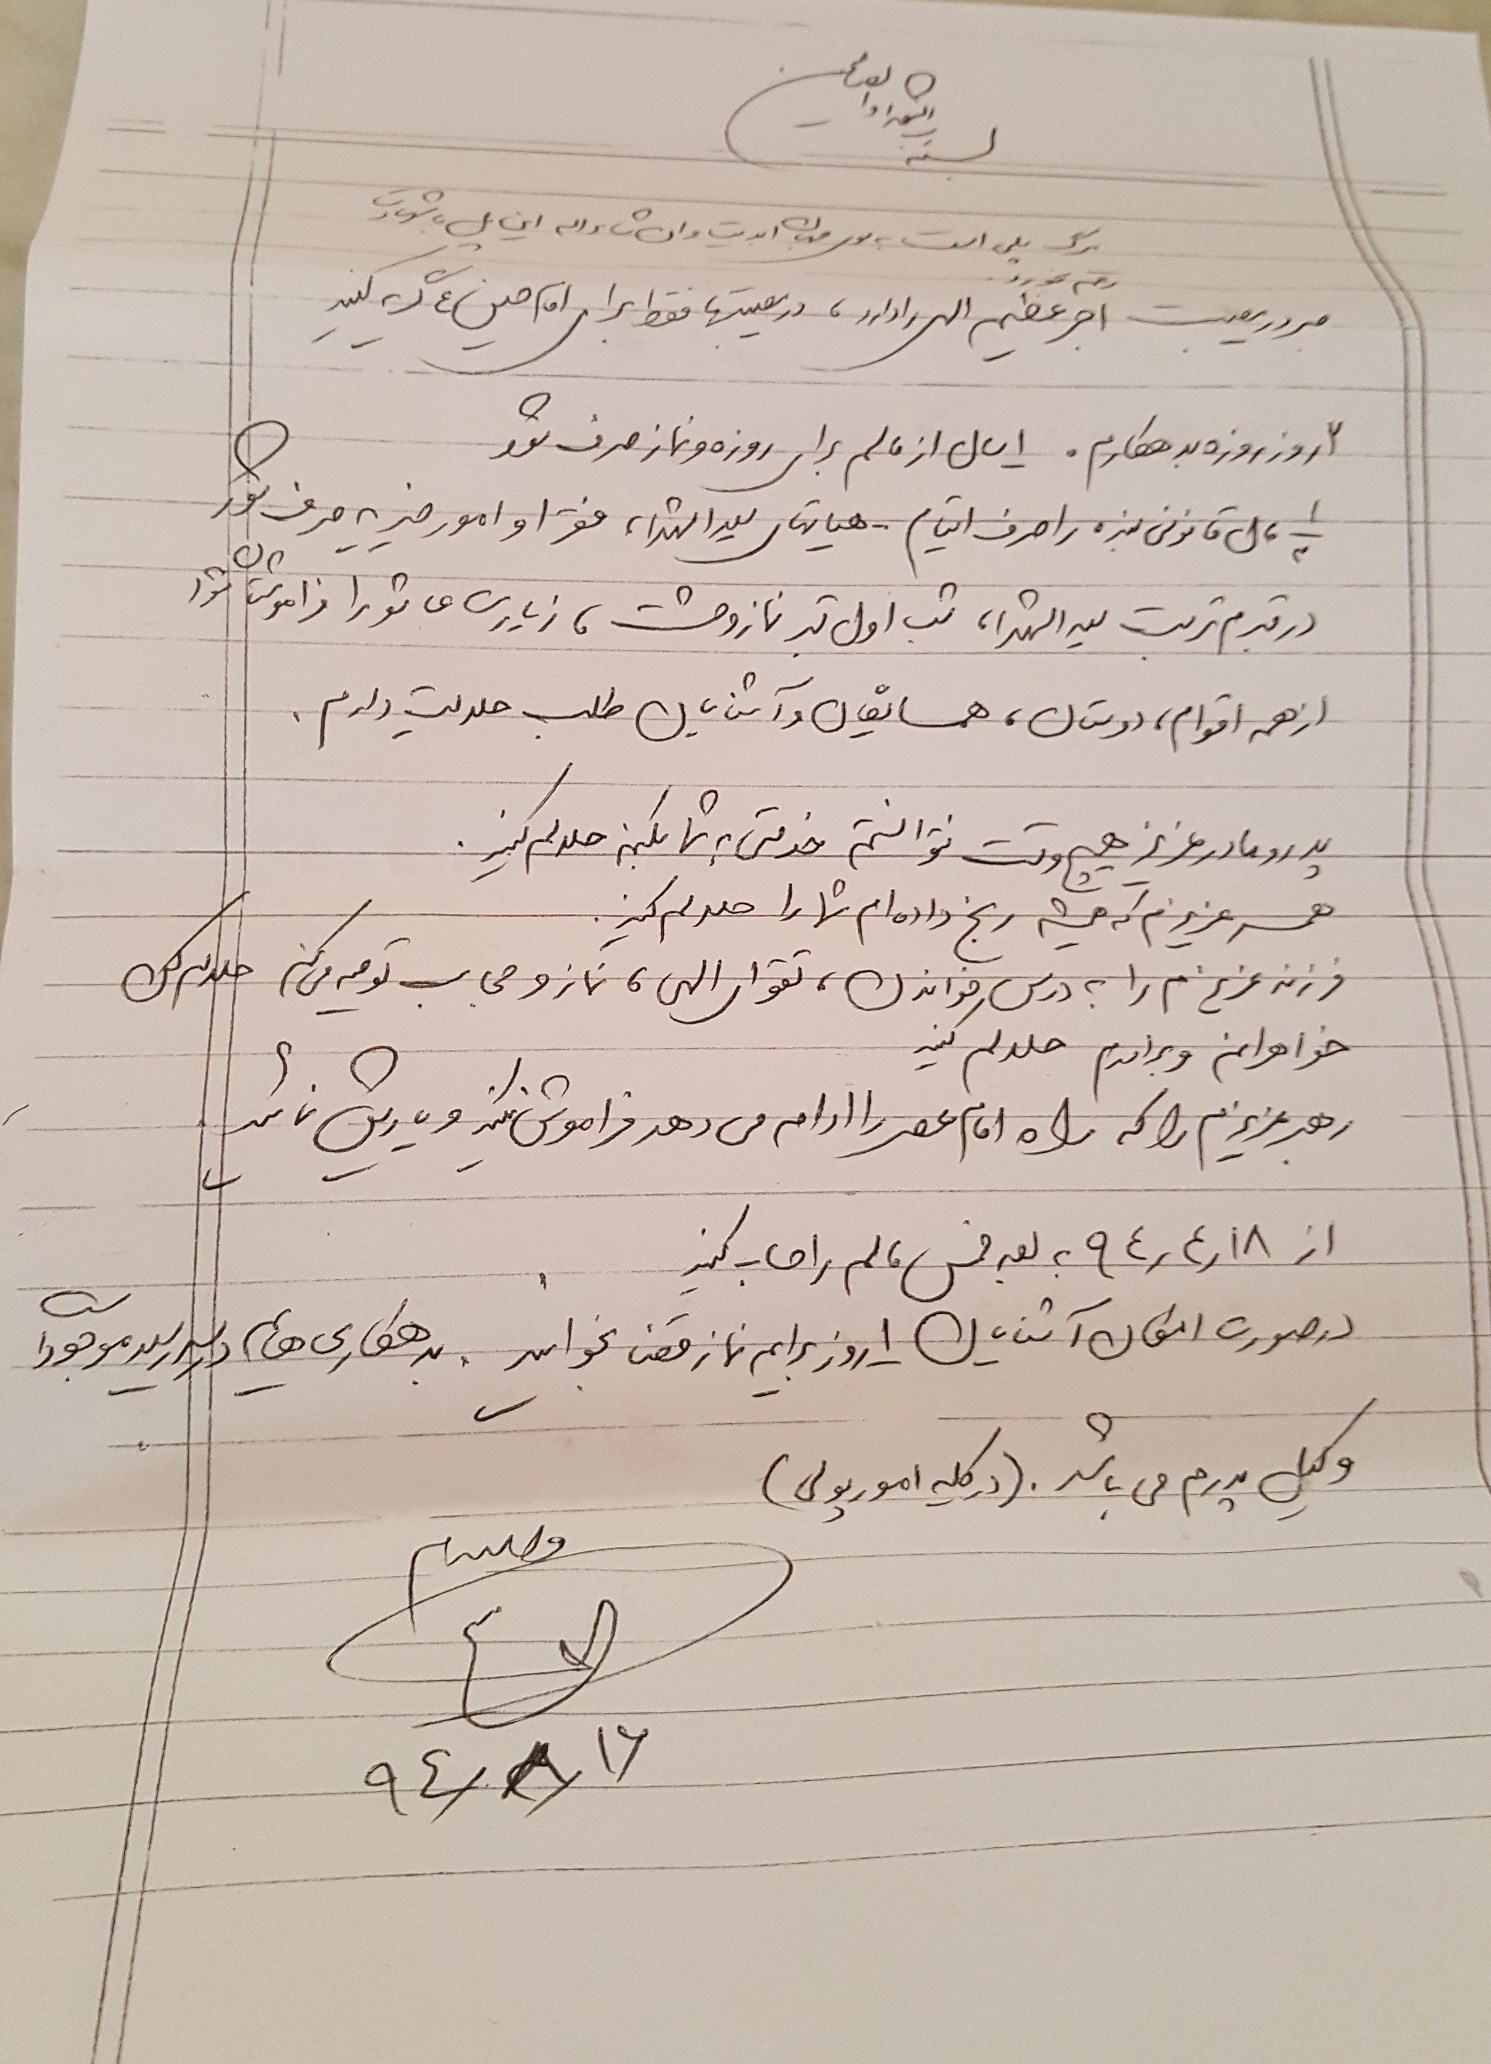 بسم رب الشهدا و الصالحین
مرگ پلی است به سوی جهان ابدیت و ان شاء اله این پل با شهادت
رقم بخورد.
صبر در مصیبت اجر عظیم الهی را دارد، در مصیبتها فقط برای امام حسین ع گریه کنید
۲ روز روزه بدهکارم. از مالم برای روزه و نماز صرف شود
مال قانونی بنده را صرف ایتام - هیاتهای سید الشهدا، فقرا و امور خیریه صرف شود
در قبرم تربت سید الشهدا، شب اول قبر نماز وحشت، زیارت عاشورا فراموش نشود
از همه اقوام، دوستان، همسایگان و آشنایان طلب حلالیت دارم.
پدر و مادر عزیز هیچ وقت نتوانستم خدمتی به شما بکنم حلالم کنید.
همسر عزیزم که همیشه رنج داده ام شما را حلالم کنید.
فرزند عزیزم را به درس خواندن، تقوای الهی، نماز و حجاب توصیه می کنم حلالم کن
خواهرانم و برادرم حلالم کنید
رهبر عزیزم را که راه امام عصر را ادامه می دهد فراموش نکنید و یاریش نمائید.
از ۹٤٫٤٫۱۸ به بعد خمس مالم را حساب کنید
در صورت امکان آشنایان ۱ روز برایم نماز قضا بخوانند. بدهکاری هایم در سررسید موجود است
وکیل پدرم می باشد. (در کلیه امور پولی)
والسلام
۹٤٫۸٫۱٦